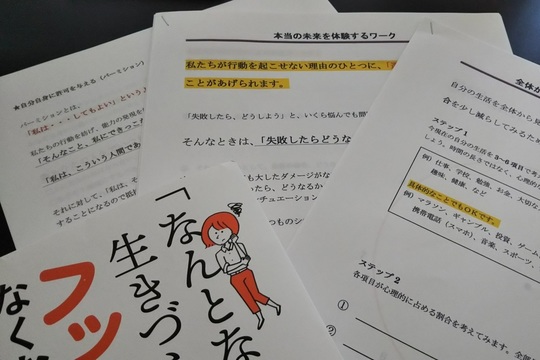 ★自分自身に許可を与える（パーミション）
パーミションとは、
「私は・・・してもよい」という
私たちの行動を妨げ、能力の発現を
「そんなこと、私にできっこ
「私は、こういう人間であ
それに対して、「私は、そ
することになるので抵
本当の未来を体験するワーク
私たちが行動を起こせない理由のひとつに、
ことがあげられます。
「失敗したら、どうしよう」と、いくら悩んでも問
そんなときは、「失敗したらどうな
も大したダメージがな
たら、どうなるか
チュエーション
つものシ
全体か
自分の生活を全体から見
合を少し減らしてみるため
ステップ1
今現在の自分の生活を3~6項目で考
しょう。時間の長さではなく、心理的な
例）仕事、学校、勉強、お金、大切な
趣味、健康、など
具体的なことでもOKです。
例）マラソン、ギャンブル、投資、ゲーム
携帯電話（スマホ）、音楽、スポーツ、
ステップ2
各項目が心理的に占める割合を考えてみます。全部
①
②
「なんとな
生きづ
フッ
なく